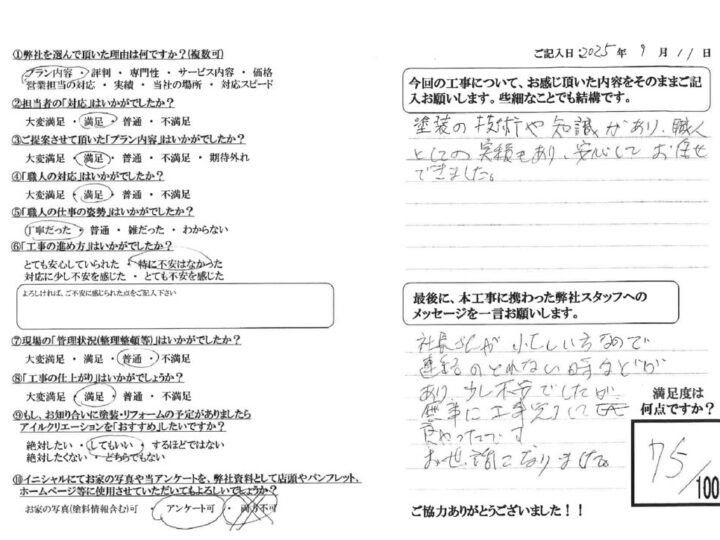 ①弊社を選んで頂いた理由は何ですか？(複数可)
プラン内容 ・ 評判 ・ 専門性 ・ サービス内容 ・ 価格
営業担当の対応 ・ 実績 ・ 当社の場所 ・ 対応スピード
②担当者の「対応」はいかがでしたか？
大変満足 ・ 満足 ・ 普通 ・ 不満足
③ご提案させて頂いた「プラン内容」はいかがでしたか？
大変満足 ・ 満足 ・ 普通 ・ 不満足 ・ 期待外れ
④「職人の対応」はいかがでしたか？
大変満足 ・ 満足 ・ 普通 ・ 不満足
⑤「職人の仕事の姿勢」はいかがでしたか？
丁寧だった ・ 普通 ・ 雑だった ・ わからない
⑥「工事の進め方」はいかがでしたか？
とても安心していられた ・ 特に不安はなかった
対応に少し不安を感じた ・ とても不安を感じた
よろしければ、ご不安に感じられた点をご記入下さい
⑦現場の「管理状況(整理整頓等)」はいかがでしたか？
大変満足 ・ 満足 ・ 普通 ・ 不満足
⑧「工事の仕上がり」はいかがでしょうか？
大変満足 ・ 満足 ・ 普通 ・ 不満足
⑨もし、お知り合いに塗装・リフォームの予定がありましたら
アイルクリエーションを「おすすめ」したいですか？
絶対したい ・ してもいい ・ するほどではない
絶対したくない ・ どちらでもない
⑩イニシャルにてお家の写真や当アンケートを、弊社資料として店頭やパンフレット、
ホームページ等に使用させていただいてもよろしいでしょうか？
お家の写真(塗料情報含む)可 ・ アンケート可 ・ 両方不可
ご記入日 2025 年 9 月 11 日
今回の工事について、お感じ頂いた内容をそのままご記
入お願いします。些細なことでも結構です。
塗装の技術や知識があり、職人
としての実績もあり、安心してお任せ
できました。
最後に、本工事に携わった弊社スタッフへの
メッセージを一言お願いします。
社長さんが忙しい方なので
連絡のとれない時などが
あり、少し不安でしたが
無事に工事完了して
良かったです
お世話になりました。
満足度は
何点ですか？
75/100
ご協力ありがとうございました！！